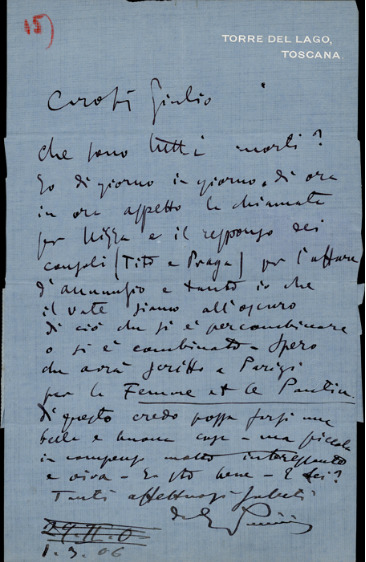 15)
TORRE DEL LAGO,
TOSCANA.
Caro Giulio
che sono tutti morti?
Io di giorno in giorno, di ora
in ora aspetto la chiamata
per Nizza e il responso dei
consoli (Tito e Praga) per l'affare
d'annunzio e tanto io che
il vate siamo all'oscuro
di ciò che si è per combinare
o si è combinato - Spero
che avrà scritto a Parigi
per la Femme et le Pantin
di questo credo possa farsi una
bella e buona cosa - ma piccola
in compenso molto interessante
e viva - Io sto bene - E lei?
Tanti affettuosi saluti
Puccini
1. 3. 06